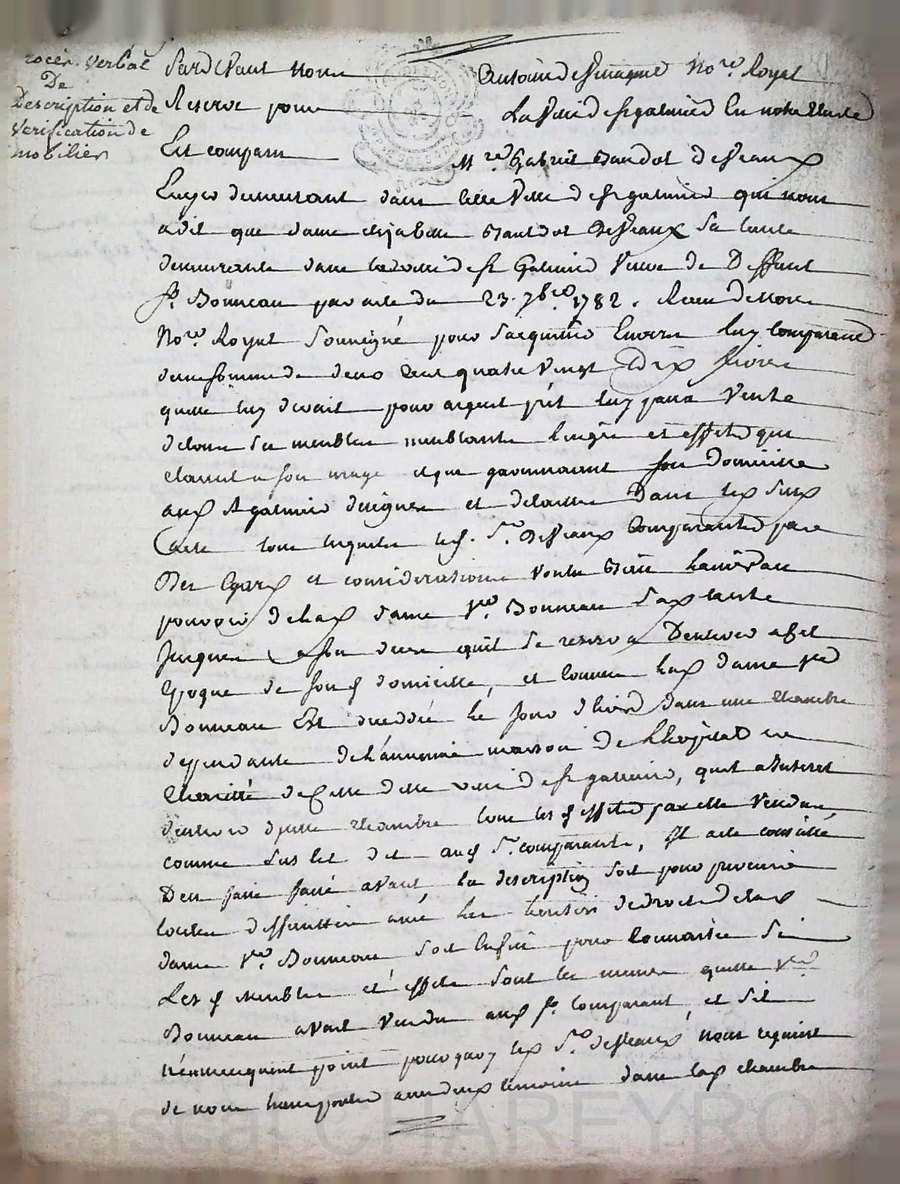 rocès verbal
De
Description et de
Verification de
mobilier
Pardevant nous Antoine No.re Royal
Reservé pour La Ville de st galmier En notre Etude
Est comparu M.re Gabriel de Veaux
Ecuyer demeurant dans cette Ville de st galmier qui nous
a dit que dame elizabeth deVeaux Sa tante
demeurante dans la de st Galmier Veuve de Deffunt
Sr. Bonneau par acte du 23. 7bre 1782. Recu de nous
No.re Royal Soussigné pour Sacquitter Envers luy comparant
dune somme de deux cent quatre vingt dix livres
quelle luy devait pour argent prêt luy passa Vente
de tous Ses meubles meublants linges et effets qui
etaient a son usage et que garnissaient son Domicille
aux st galmier et detailles Dans led. Susd.
acte tous lesquels led. Sr. DeVeaux Comparant par
Des Egards et considerations voulu laisser au
pouvoir de lad. dame Ve. Bonneau Sad. tante
Jusques a son deces quil Se reserva Denlever a cet
Epoque de sond. domicille, et comme lad. dame Ve.
Bonneau Est decedée le Jour dhier dans une chambre
dependante de maison de Lhopital
charitté de Cette ditte ville de st galmier, quil a Interet
denlever dicelle chambre tous lesd. effets par elle Vendus
comme Sus Est dit aud. Sr. comparant, Il a eté conseillé
Den faire faire avant la description Soit pour prevenir
toutes difficultés avec les heritiers de droit de lad.
dame Ve. Bonneau Soit Enfin pour connaitre Si
Lesd. Meubles et effets Sont les memes quelle Ve.
Bonneau avait Vendu aud. Sr. Comparant, et Sil
nen manquent point pourquoy led. Sr. deVeaux nous requiert
de nous transporter avec deux temoins dans lad. chambre
Pascal CHAREYRON